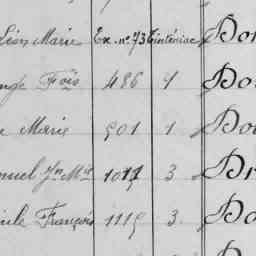 Léon Marie Ex. nº 736 Tinténiac Dou
ange Fois 486 4 Do
e Marie 501 1 Dou
nuel Jn Mie 1011 3 Dr
cile François 1115 3 Do